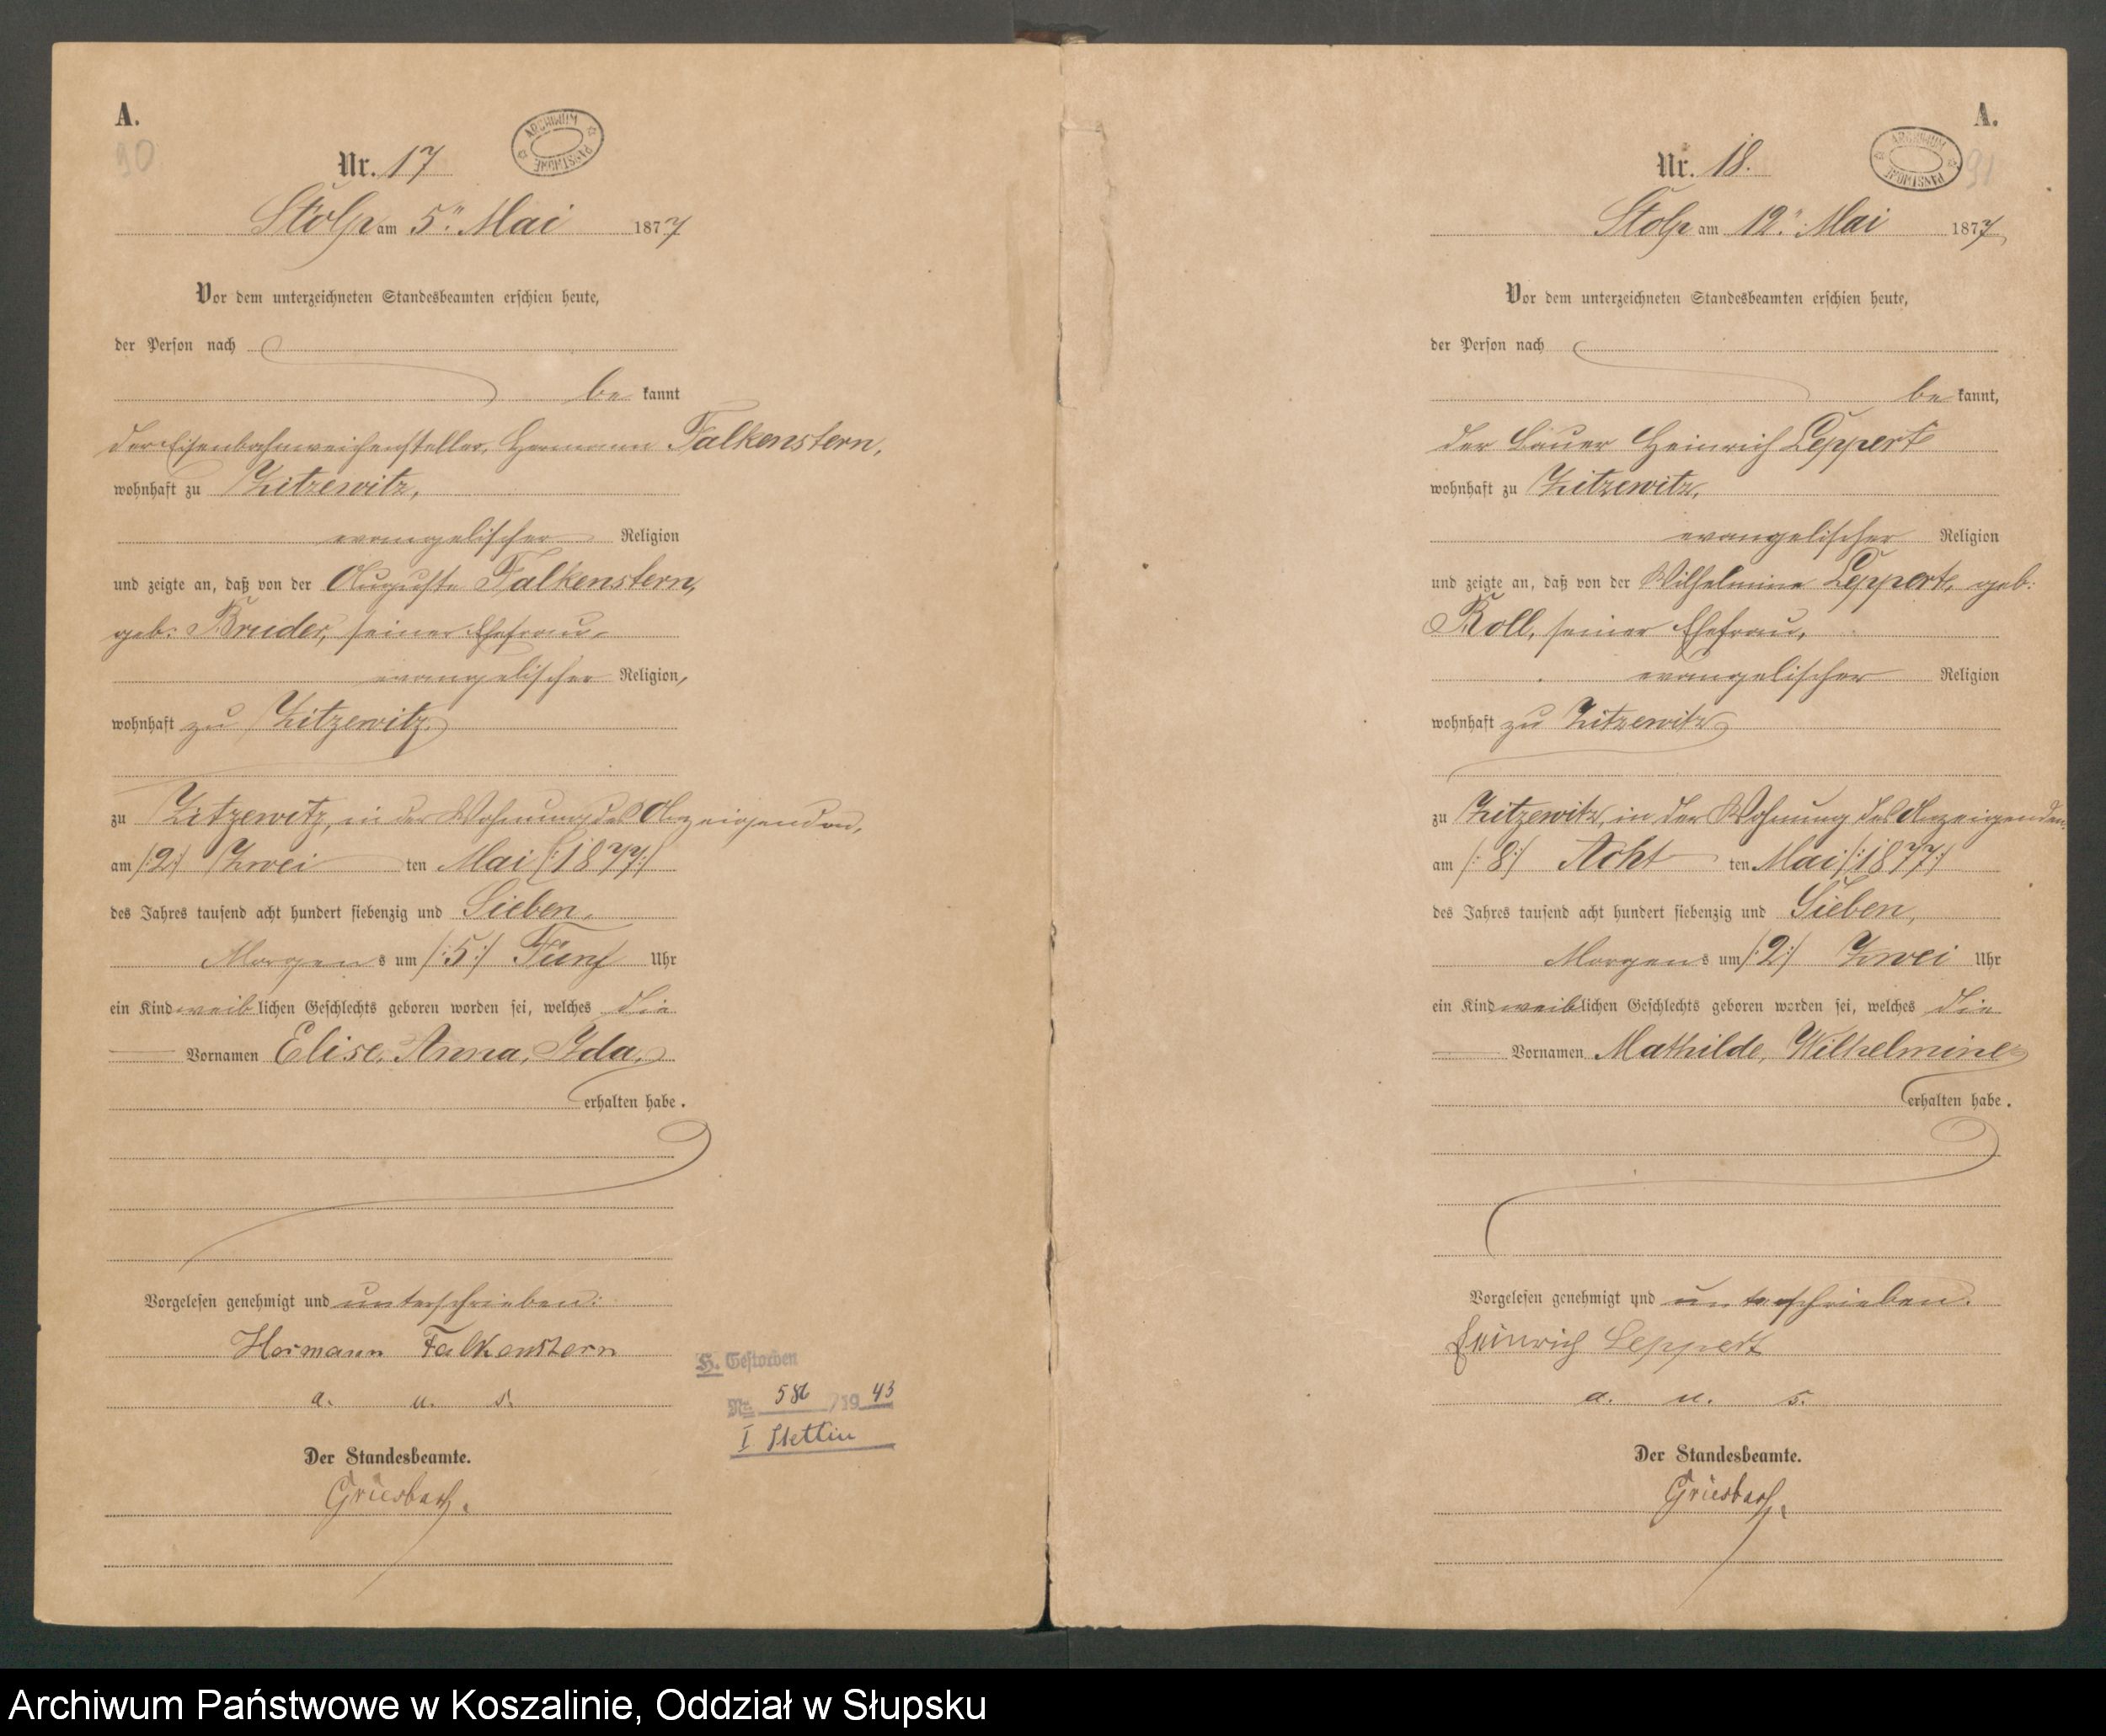 A.
90
Nr. 17
ARCHIWUM PAŃSTWOWE
Stolp am 5ten Mai 1877
Vor dem unterzeichneten Standesbeamten erschien heute,
der Person nach
be kannt
der Eisenbahnweichensteller, Hermann Falkenstern,
wohnhaft zu Zitzewitz,
evangelischer Religion
und zeigte an, daß von der Auguste Falkenstern,
geb: Bruder, seiner Ehefrau,
evangelischer Religion,
wohnhaft zu Zitzewitz
zu Zitzewitz, in der Wohnung des Anzeigenden,
am /:2:/ Zwei ten Mai /:1877:/
des Jahres tausend acht hundert siebenzig und Sieben,
Morgens um /:5:/ Fünf Uhr
ein Kind weiblichen Geschlechts geboren worden sei, welches die
Vornamen Elise, Anna, Ida,
erhalten habe.
Vorgelesen genehmigt und unterschrieben:
Hermann Falkenstern
a. u. s.
H. Gestorben
Nr. 586 /1943
I Stettin
Der Standesbeamte.
Griesbach.
A.
91
Nr. 18.
ARCHIWUM PAŃSTWOWE
Stolp am 12ten Mai 1877
Vor dem unterzeichneten Standesbeamten erschien heute,
der Person nach
be kannt,
der Bauer Heinrich Leppert
wohnhaft zu Zitzewitz,
evangelischer Religion
und zeigte an, daß von der Wilhelmine Leppert, geb:
Roll, seiner Ehefrau,
evangelischer Religion
wohnhaft zu Zitzewitz
zu Zitzewitz, in der Wohnung des Anzeigenden,
am /:8:/ Acht ten Mai /:1877:/
des Jahres tausend acht hundert siebenzig und Sieben,
Morgens um /:2:/ Zwei Uhr
ein Kind weiblichen Geschlechts geboren worden sei, welches die
Vornamen Mathilde, Wilhelmine
erhalten habe.
Vorgelesen genehmigt und unterschrieben.
Heinrich Leppert
a. u. s.
Der Standesbeamte.
Griesbach.
Archiwum Państwowe w Koszalinie, Oddział w Słupsku